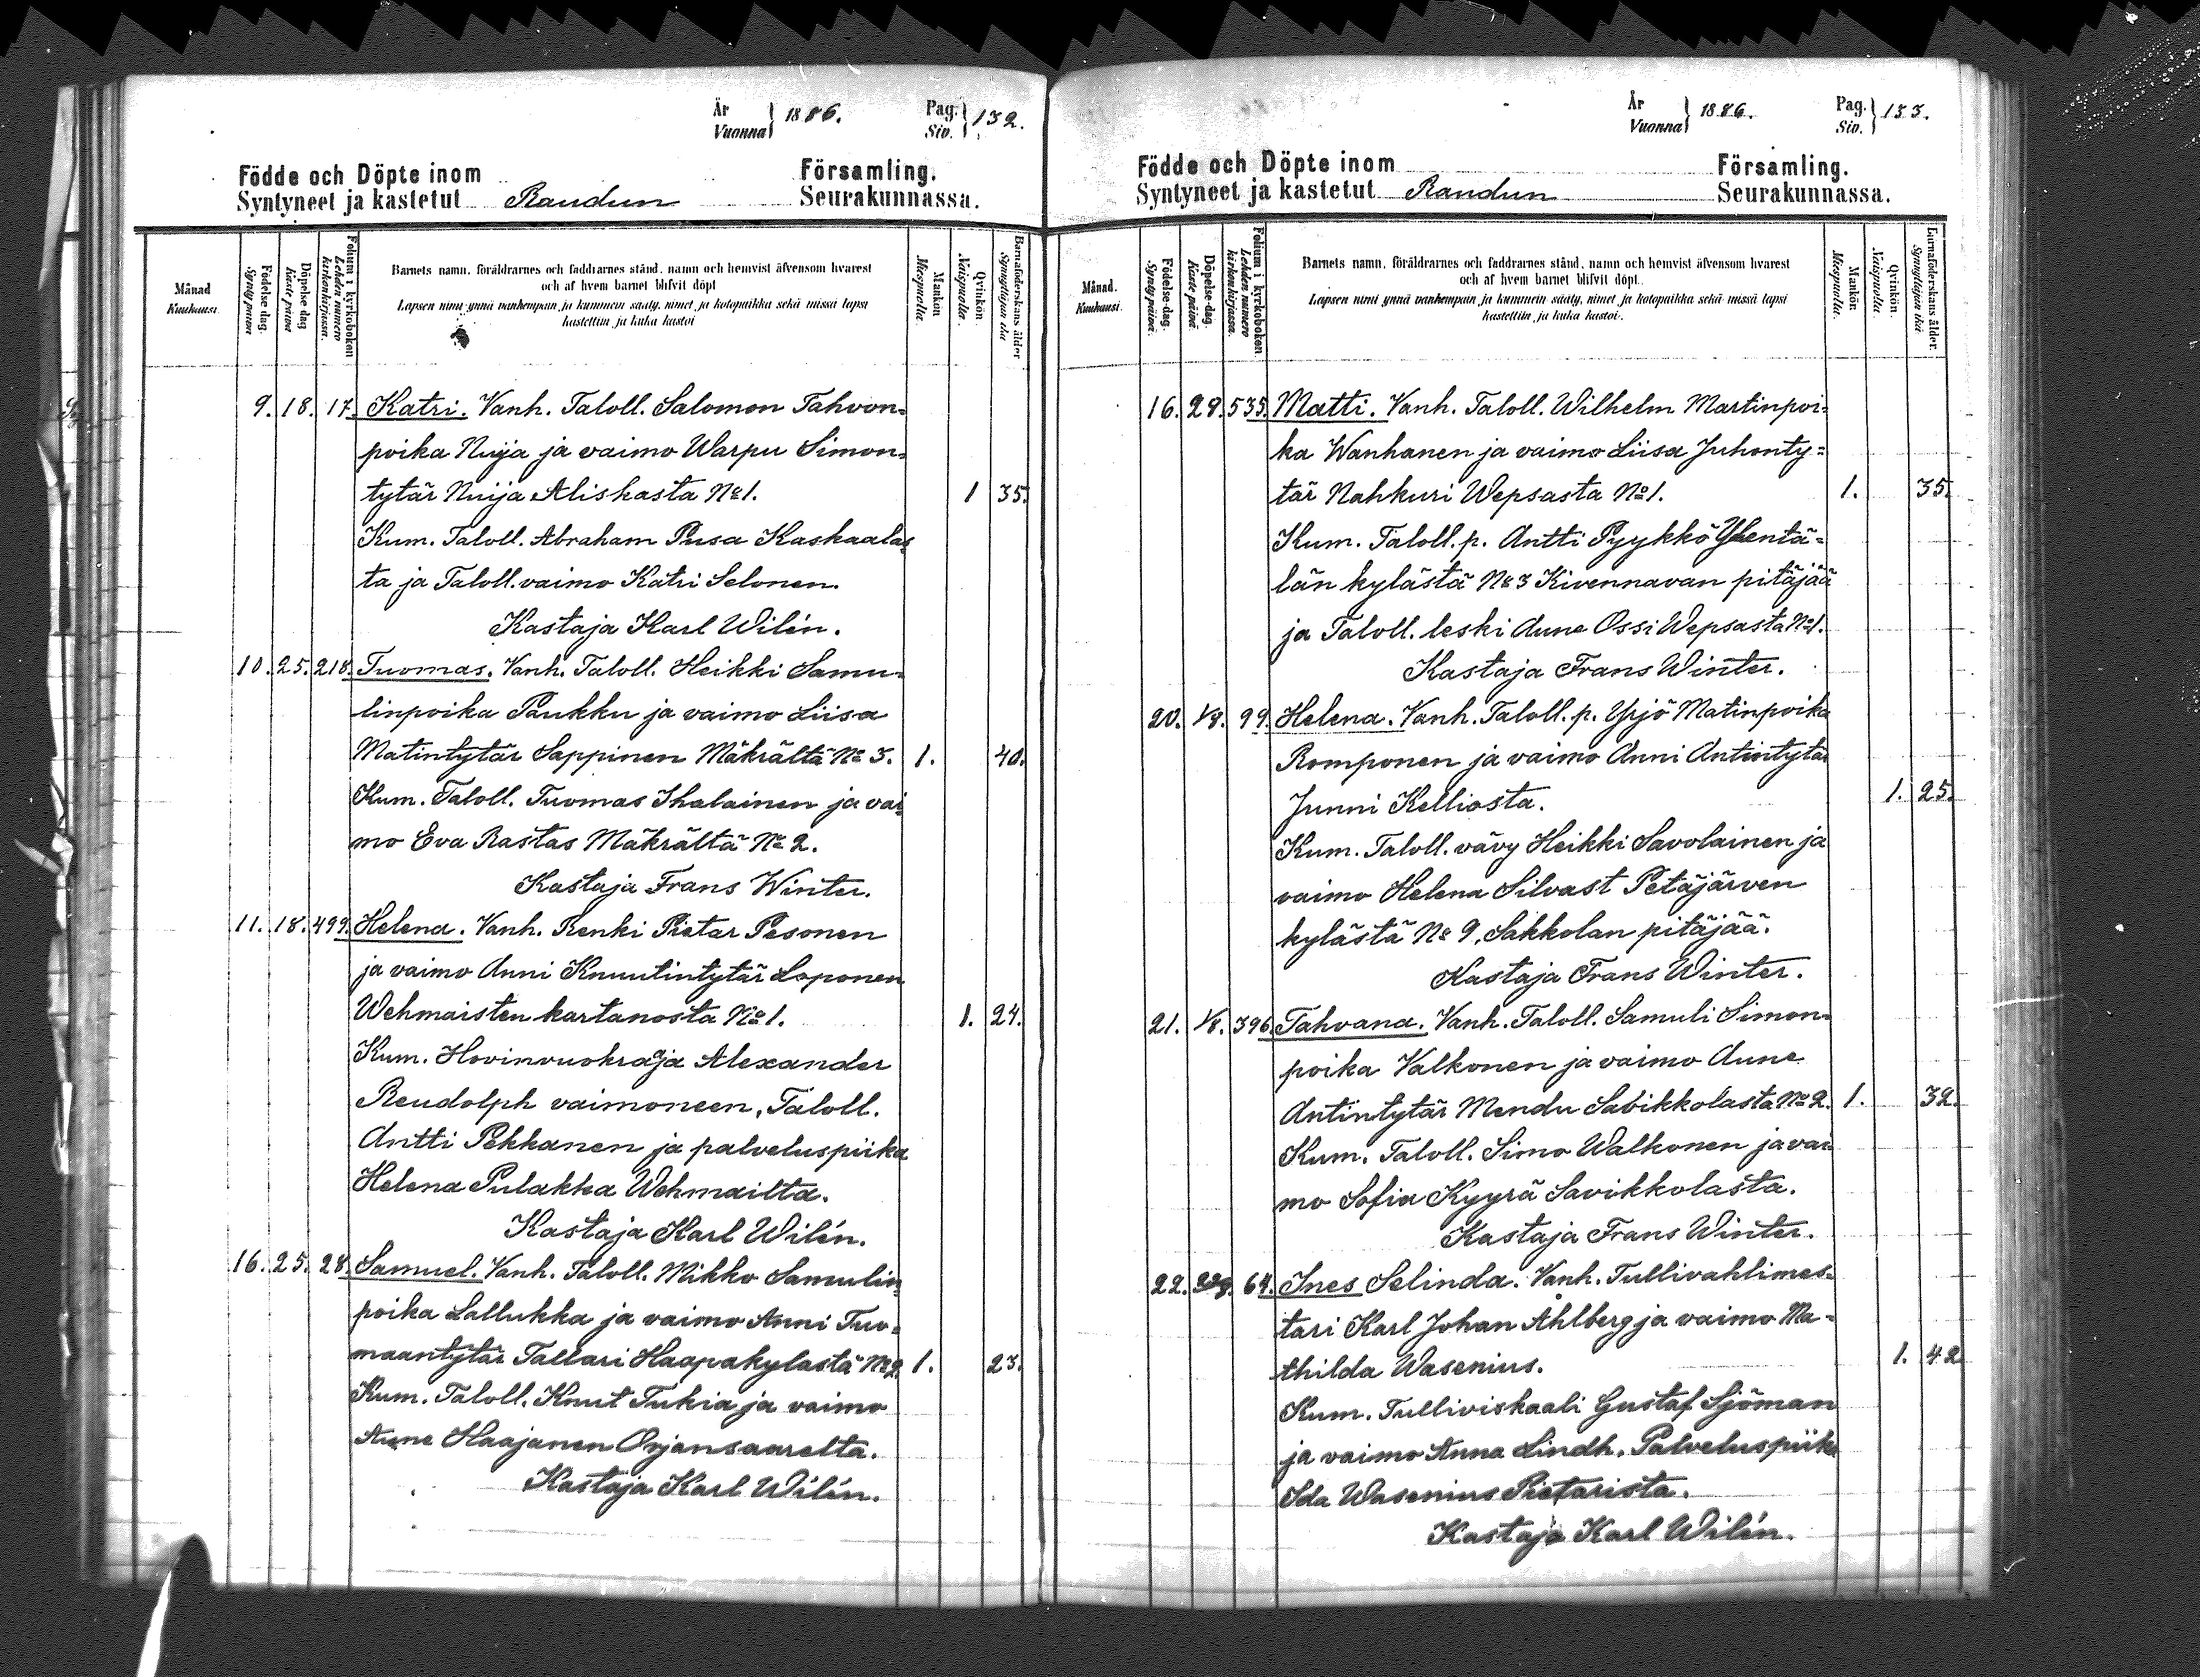 År
Vuonna } 1886.
Pag.
Siv. } 132.
Födde och Döpte inom
Syntyneet ja kastetut Raudun
Församling.
Seurakunnassa.
Månad
Kuukausi.
Födelse-dag.
Syntypäivä
Döpelse-dag
Kaste päivä
Folium i kyrkoboken
Lehden numero
kirkonkirjassa.
Barnets namn, föräldrarnes och faddrarnes stånd, namn och hemvist äfvensom hvarest
och af hvem barnet blifvit döpt
Lapsen nimi ynnä vanhempain ja kummein sääty, nimet ja kotopaikka sekä missä lapsi
kastettiin ja kuka kastoi
Mankön
Miespuolia
Qvinkön.
Naispuolia.
Barnaföderskans ålder
Synnyttäjän ikä
9. 18. 17. Katri. Vanh. Taloll. Salomon Tahvon=
poika Nuija ja vaimo Warpu Simon=
tytär Nuija Aliskasta No 1. 1 35.
Kum. Taloll. Abraham Pusa Kaskaalas
ta ja Taloll. vaimo Katri Selonen.
Kastaja Karl Wilén.
10. 25. 218. Tuomas. Vanh. Taloll. Heikki Samu=
linpoika Paukku ja vaimo Liisa
Matintytär Sappinen Mäkrältä No 3. 1. 40.
Kum. Taloll. Tuomas Ihalainen ja vai
mo Eva Rastas Mäkrältä No 2.
Kastaja Frans Winter.
11. 18. 499. Helena. Vanh. Renki Pietar Pesonen
ja vaimo Anni Knuutintytär Loponen
Wehmaisten kartanosta No 1. 1. 24.
Kum. Hovinvuokraaja Alexander
Reudolph vaimoneen, Taloll.
Antti Pekkanen ja palveluspiika
Helena Pulakka Wehmailta.
Kastaja Karl Wilén.
16. 25. 28. Samuel. Vanh. Taloll. Mikko Samulin
poika Lallukka ja vaimo Anni Tuo=
maantytär Tallari Haapakylastä No 2. 1. 23.
Kum. Taloll. Knut Tukia ja vaimo
Aune Haajanen Orjansaarelta.
Kastaja Karl Wilén.
År
Vuonna } 1886.
Pag.
Siv. } 133.
Födde och Döpte inom
Syntyneet ja kastetut Raudun
Församling.
Seurakunnassa.
Månad.
Kuukausi.
Födelse-dag.
Synty päivä.
Döpelse-dag.
Kaste päivä
Folium i kyrkoboken.
Lehden numero
kirkonkirjassa.
Barnets namn, föräldrarnes och faddrarnes stånd, namn och hemvist äfvensom hvarest
och af hvem barnet blifvit döpt.
Lapsen nimi ynnä vanhempain ja kummein sääty, nimet ja kotopaikka sekä missä lapsi
kastettiin ja kuka kastoi.
Mankön.
Miespuolia.
Qvinkön.
Naispuolia
Barnaföderskans ålder.
Synnyttäjän ikä.
16. 29. 535. Matti. Vanh. Taloll. Wilhelm Martinpoi=
ka Wanhanen ja vaimo Liisa Juhonty=
tär Nahkuri Wepsasta No 1. 1. 35.
Kum. Taloll. p. Antti Pyykkö
län kylästä No 3 Kivennavan pitäjää
ja Taloll. leski Aune Ossi Wepsasta No 1.
Kastaja Frans Winter.
20. 1/8. 99. Helena. Vanh. Taloll. p. Yrjö Matinpoika
Romponen ja vaimo Anni Antintytär
Junni Kelliosta. 1. 25.
Kum. Taloll. vävy Heikki Savolainen ja
vaimo Helena Silvast Petäjärven
kylästä No 9, Sakkolan pitäjää.
Kastaja Frans Winter.
21. 1/8. 396. Tahvana. Vanh. Taloll. Samuli Simon=
poika Valkonen ja vaimo Aune
Antintytär Mendu Savikkolasta No 2. 1. 32.
Kum. Taloll. Simo Walkonen ja vai
mo Sofia Kyyrä Savikkolasta.
Kastaja Frans Winter.
22. 64. Ines Selinda. Vanh. Tullivahtimes=
tari Karl Johan Ahlberg ja vaimo Ma=
thilda Wasenius. 1. 42
Kum. Tulliviskaali Gustaf Sjöman
ja vaimo Anna Lindh. Palveluspiika
Ida Wasenius Pietarista.
Kastaja Karl Wilén.